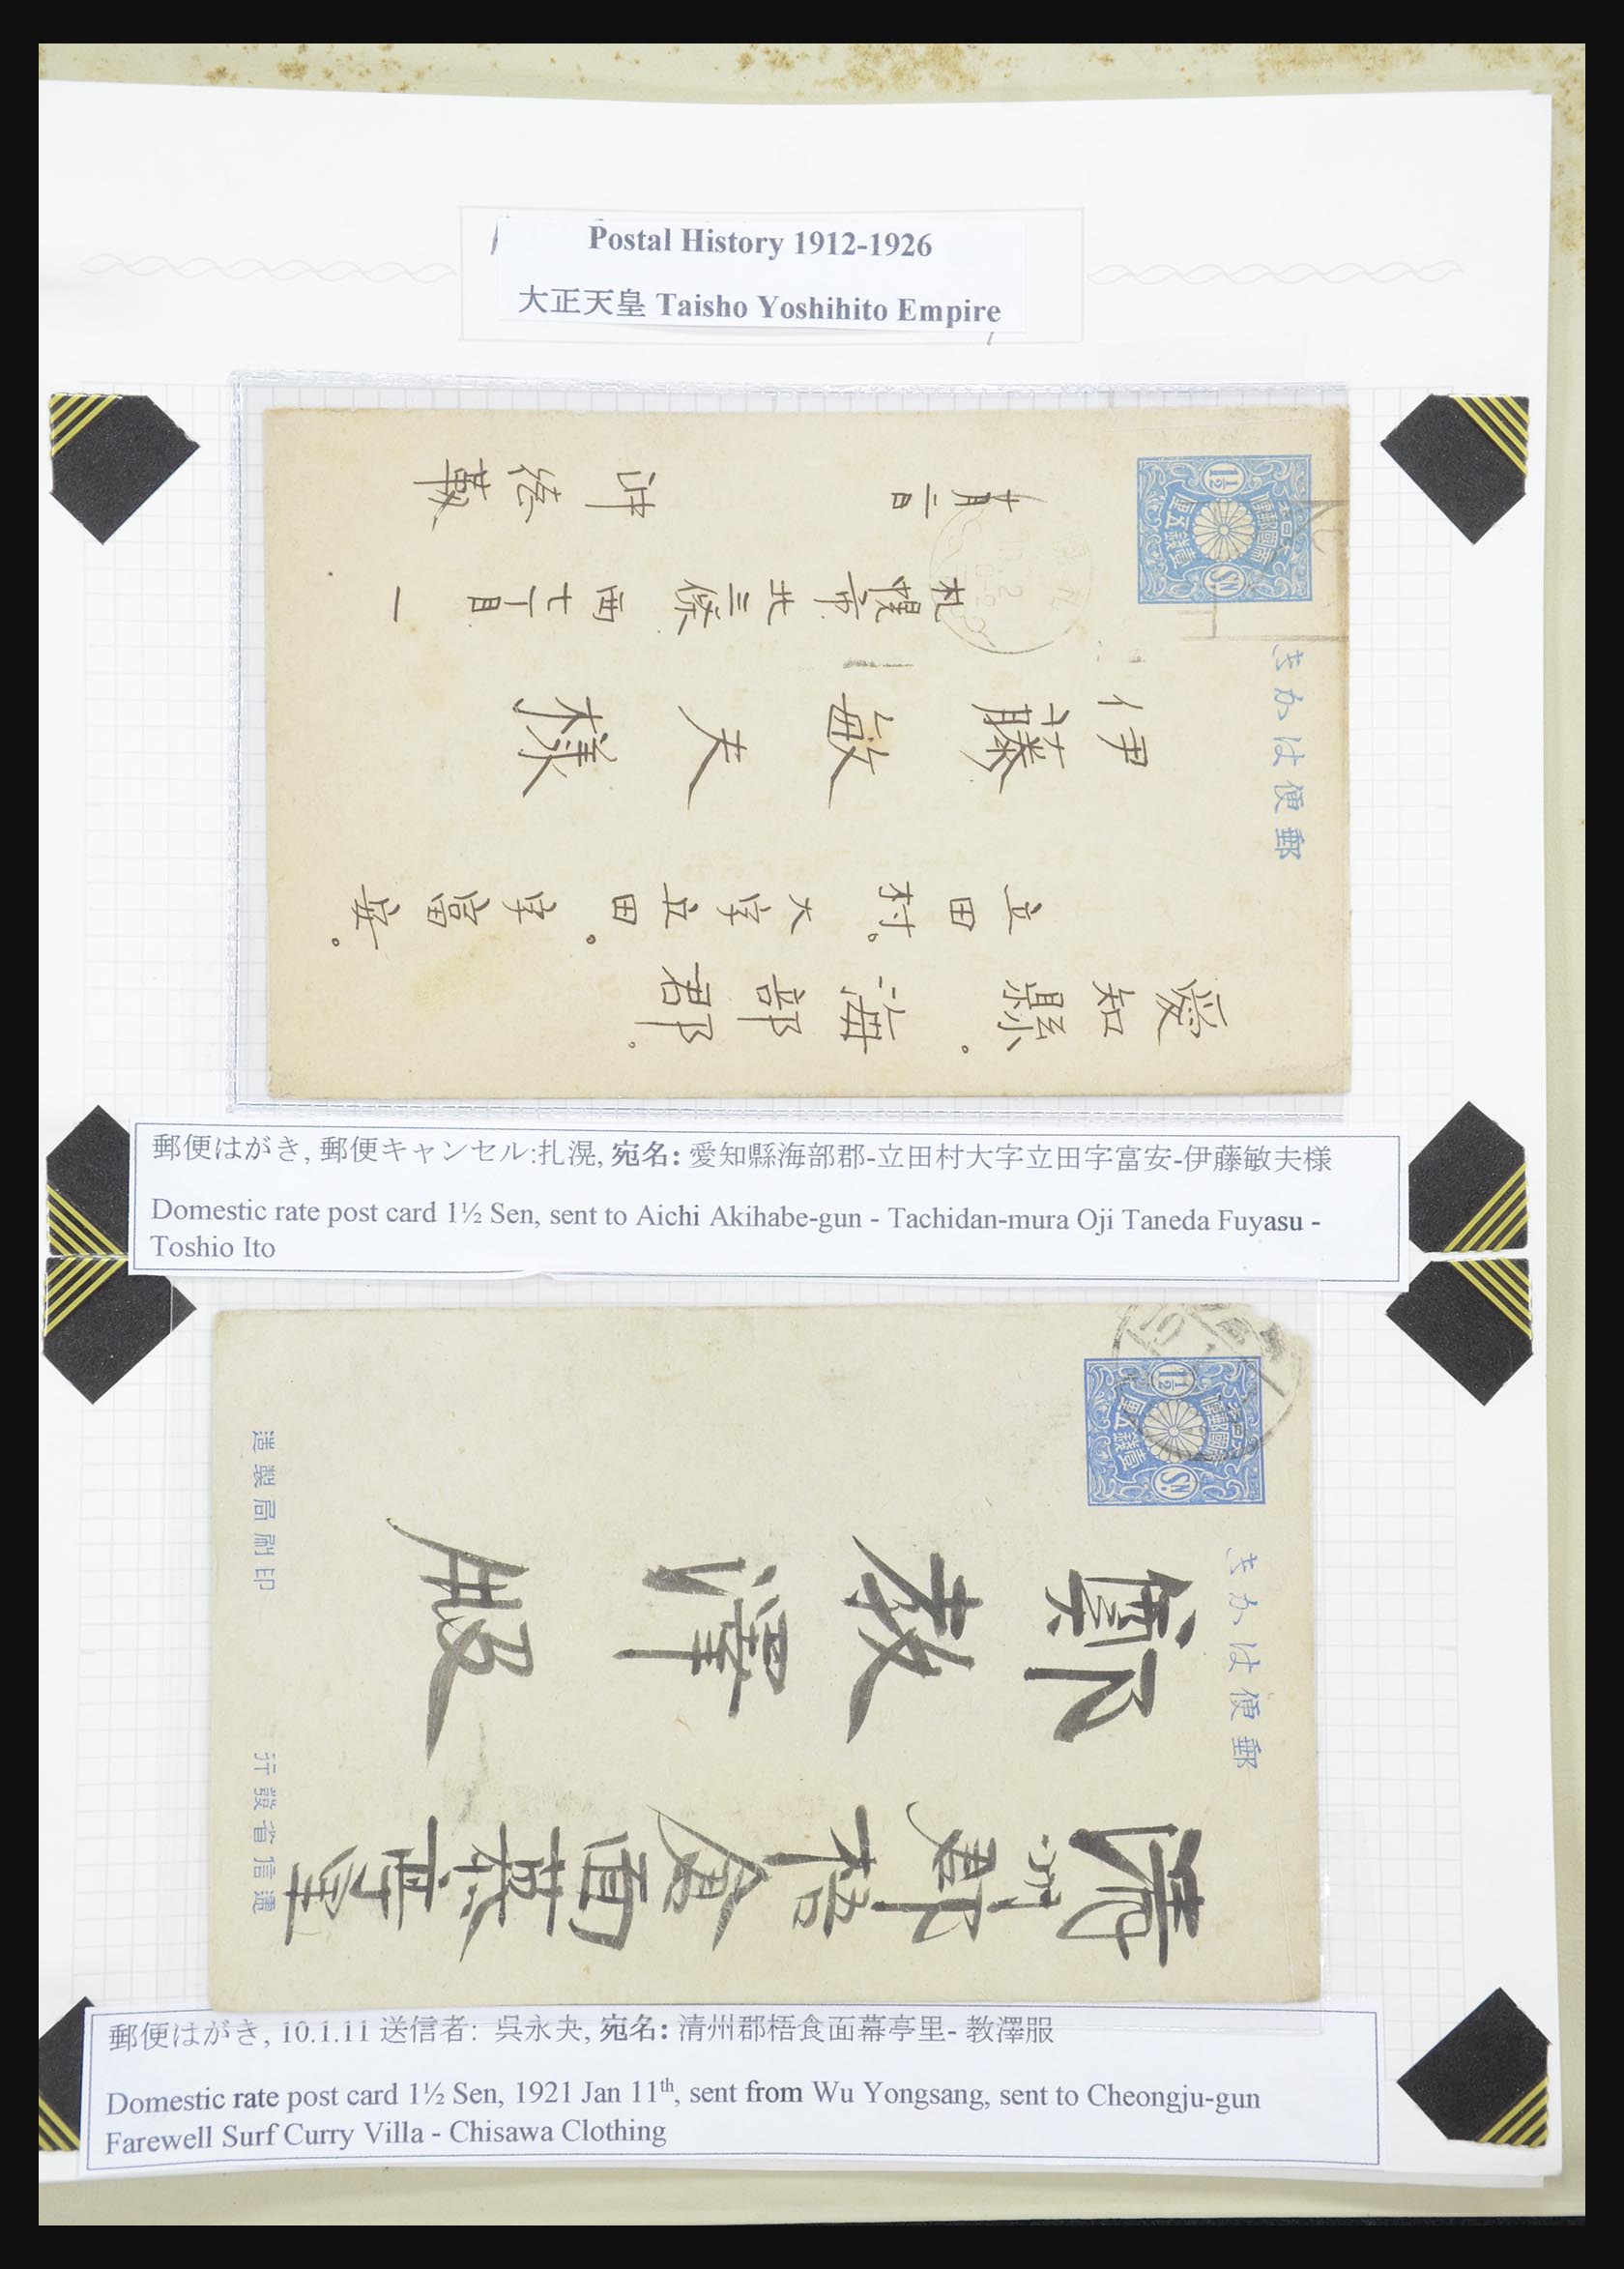 Postal History 1912-1926
大正天皇 Taisho Yoshihito Empire
大日本帝國郵便
1½
SN
壹錢五厘
郵便はかき
愛知縣海部郡
立田村大字立田字富安
伊藤敏夫様
札幌市北三條西十丁目一
郵便はがき, 郵便キャンセル:扎滉, 宛名: 愛知縣海部郡-立田村大字立田字富安-伊藤敏夫様
Domestic rate post card 1½ Sen, sent to Aichi Akihabe-gun - Tachidan-mura Oji Taneda Fuyasu -
Toshio Ito
大日本帝國郵便
1½
SN
壹錢五厘
郵便はかき
清州郡梧倉面慕亭里
鄭教澤殿
逓信省發行
印刷局製造
郵便はがき, 10.1.11 送信者: 呉永夬, 宛名: 清州郡梧食面幕亭里- 教澤服
Domestic rate post card 1½ Sen, 1921 Jan 11th, sent from Wu Yongsang, sent to Cheongju-gun
Farewell Surf Curry Villa - Chisawa Clothing